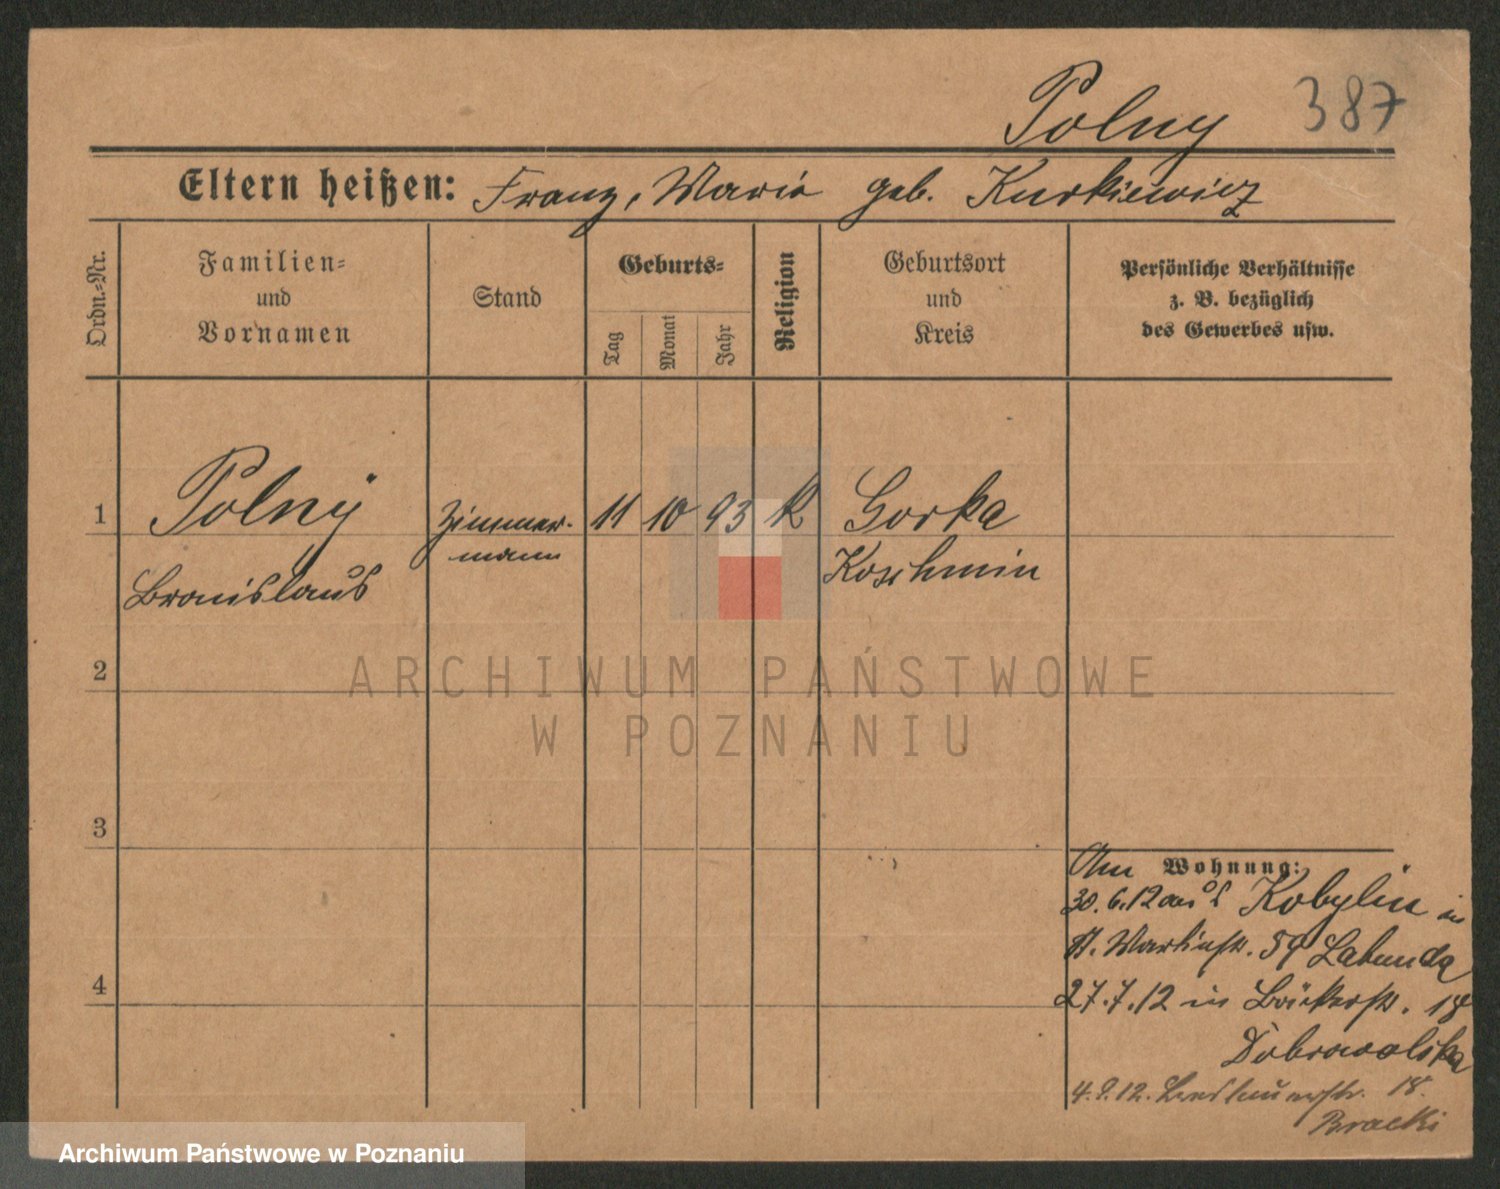 Polny 387
Eltern heißen: Franz, Maria geb. Kurkiewicz
Ordn.-Nr.
Familien-
und
Vornamen
Stand
Geburts-
Tag
Monat
Jahr
Religion
Geburtsort
und
Kreis
Persönliche Verhältnisse
z. B. bezüglich
des Gewerbes usw.
1 Polny Zimmer- 11 10 93 k Gorka
Bronislaus mann Koschmin
2
ARCHIWUM PAŃSTWOWE
W POZNANIU
3
Am Wohnung:
30.6.12 aus Kobylin in
St. Martinstr. 59
4
27.7.12 in Bäckerstr. 18
Dobrowolska
4.9.12. 18.
Bracki
Archiwum Państwowe w Poznaniu